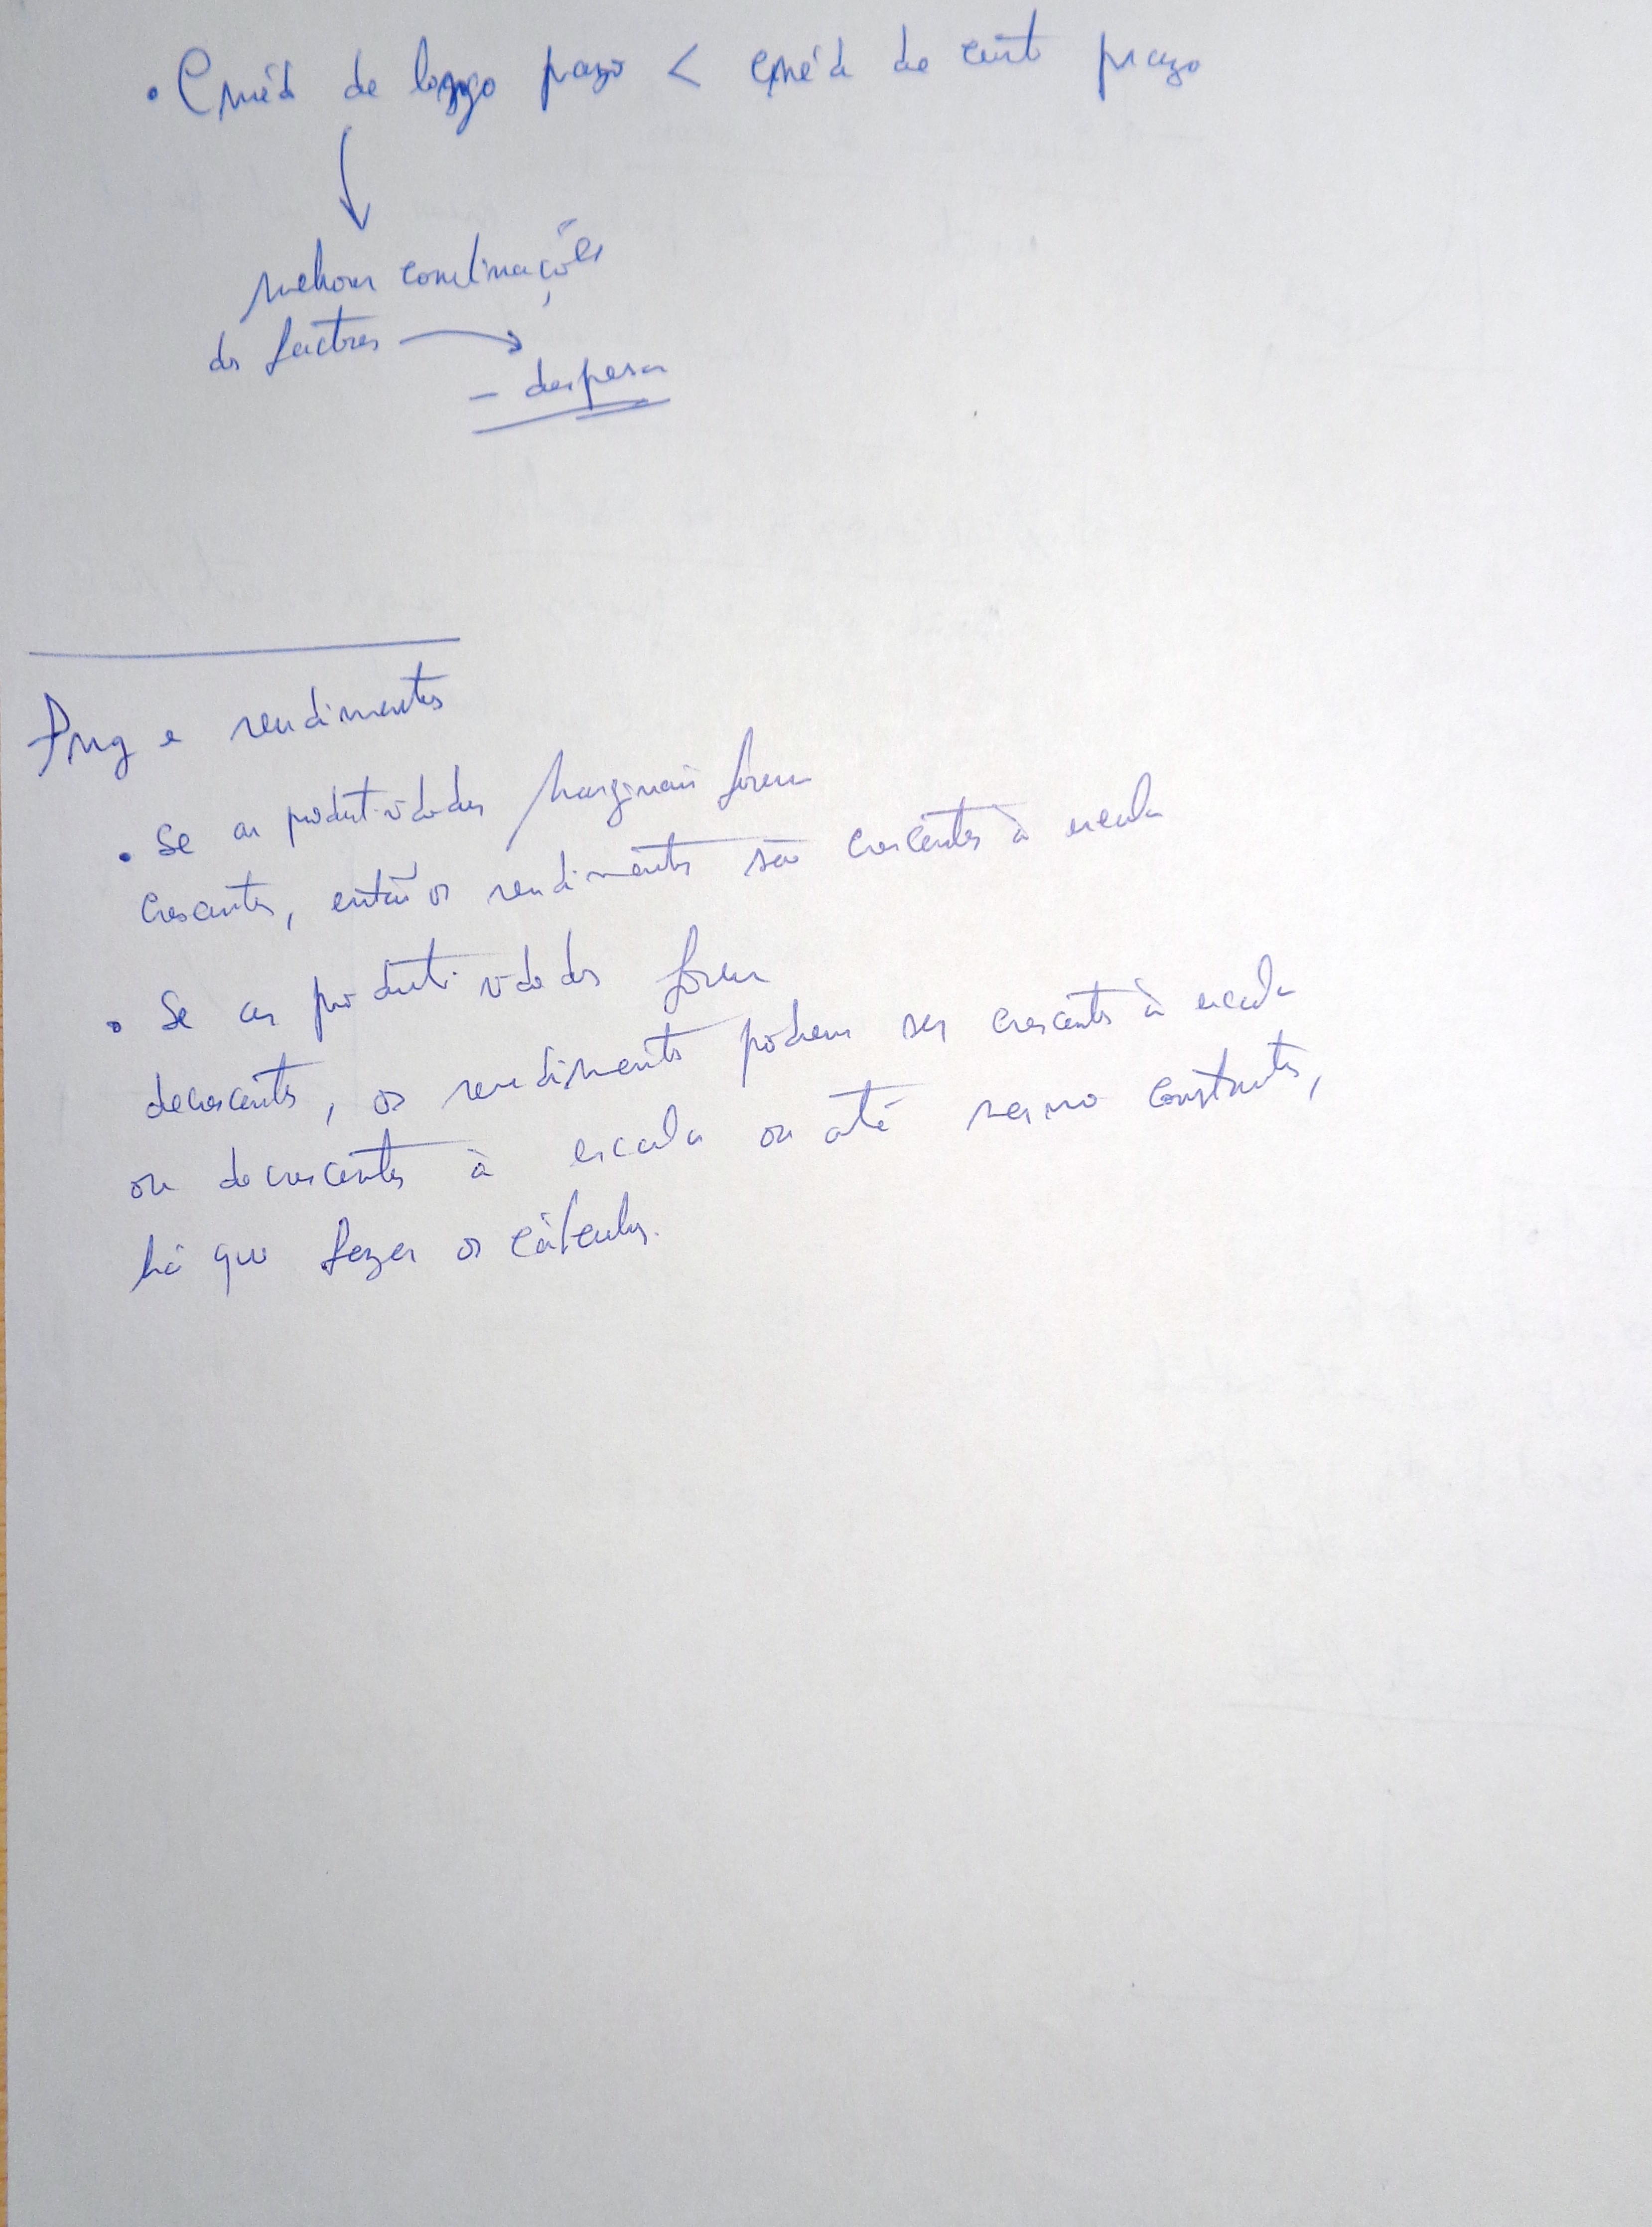 • Cméd de longo prazo < Cméd de curto prazo
melhores combinações
dos factores
- despesa
Pmg e rendimentos
• Se as produtividades marginais forem
crescentes, então os rendimentos são crescentes à escala
• Se as produtividades forem
decrescentes, os rendimentos podem ser crescentes à escala
ou decrescentes à escala ou até mesmo constantes,
há que fazer os cálculos.